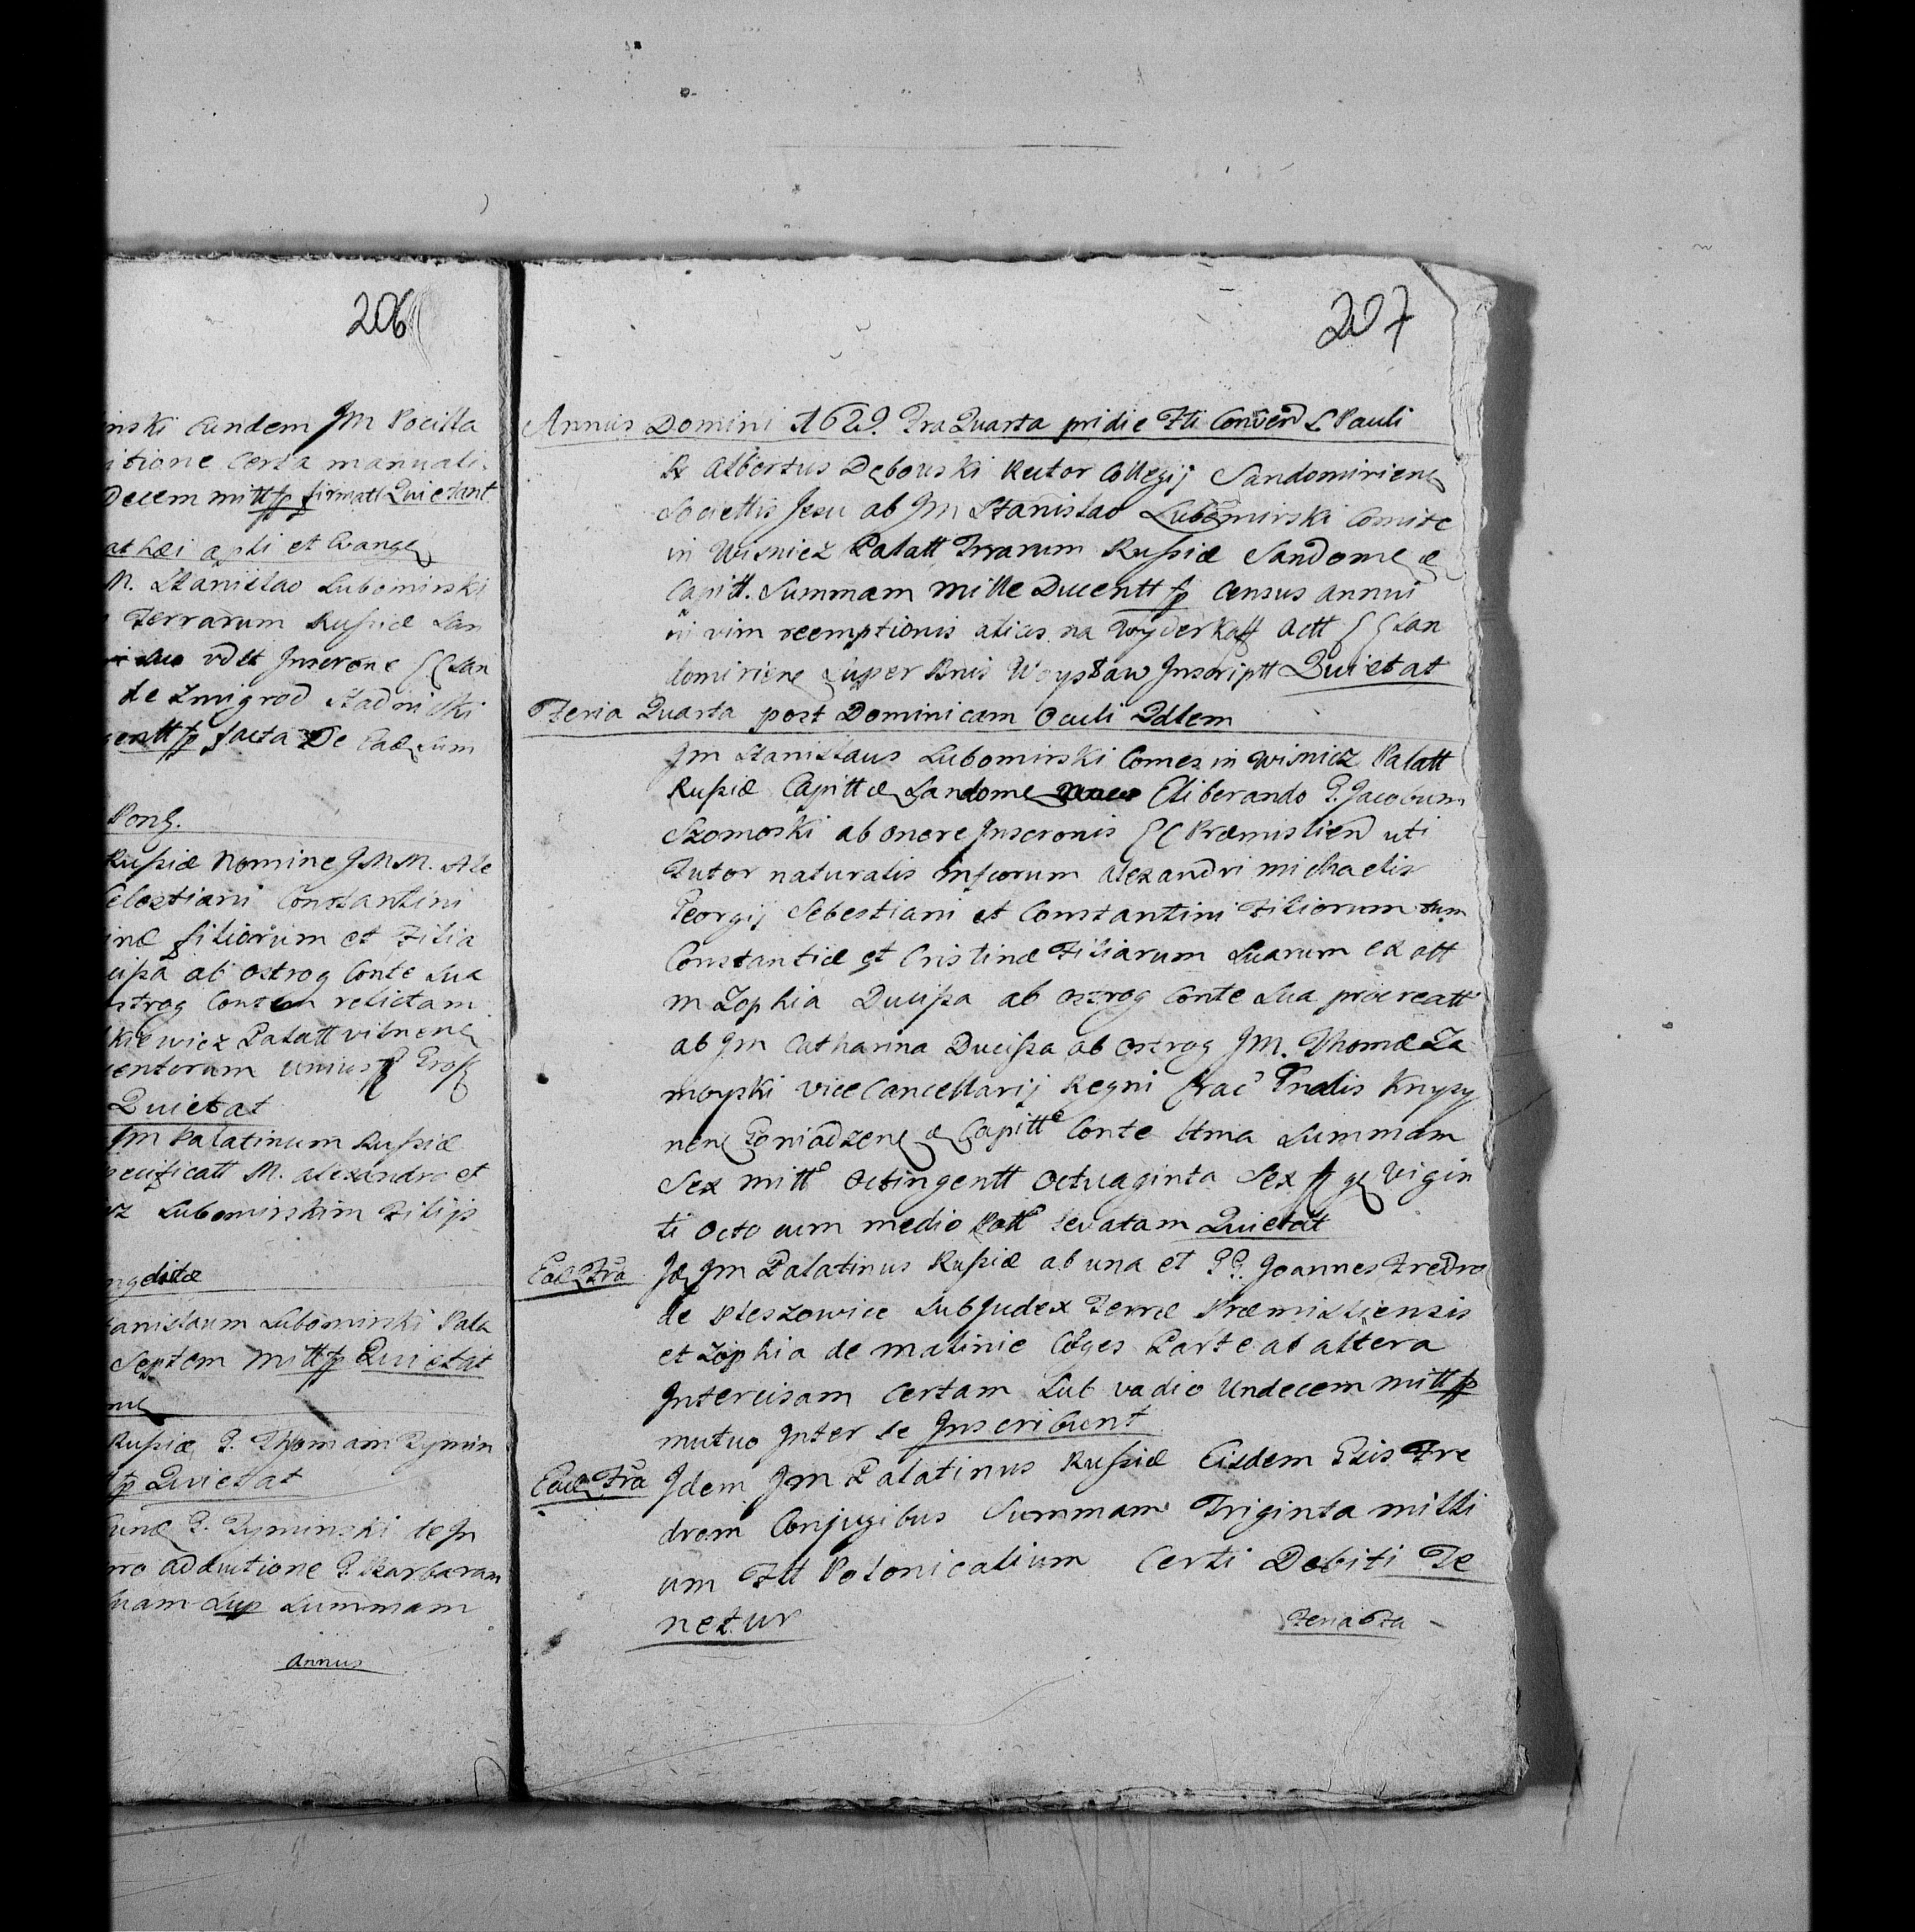 206
inski eundem JM Pocilla
itione certa manuali
Decem mill fp firmatt Quietant
at hæi apli et Evange
M. Stanislao Lubomirski
Terrarum Russiæ San
suo vdlt Inscrone CC San
de Zmigrod Stadnicki
centt fp facta De Ead Sum
Pong.
Russiæ Nomine JMM. Ale
ebestiani Constantini
inæ filiorum et Filia
cissa ab ostrog Conte Sua
strog Contem relictam
kiewicz Palatt vilnene
entorum unius Gross
Quietat
Jm Palatinum Russiæ
pecificatt M. alexandro et
cz Lubomirskim Filijs
ngditæ
anislaum Lubomirski Pala
Septem mill fp Quietat
Russiæ P. Thomam Rymin
fp Quietat
P. Ryminski se In
ro aductione P. Barbaram
suam Sup Summam
annus
207
Annus Domini 1629. Fra Quarta pridie Fti Convers S Pauli
R Albertus Debouski Rector Collegij Sandomiriene
Societtis Jesu ab Jm Stanislao Lubomirski Comite
in Wisnicz Palatt Trrarum Russiæ Sandome æ
Capitt. Summam mille Ducentt fp Census annui
in vim reemptionis alias na Wyderkoff Actt CC San
domiriene super Bnis Woyslaw Inscriptt Quietat
Feria Quarta post Dominicam Oculi Qdlem
Jm Stanislaus Lubomirski Comes in Wisnicz Palatt
Russiæ Capitt æ Sandome Eliberando P. Jacobum
Szomoski ab onere Inscronis CC Præmislien uti
Tutor naturalis Mfcorum alexandri michaelis
Georgij Sebestiani et Constantini Filiorum tum
Constantiæ et Cristinæ Filiarum Suarum ex ott
m Zophia Ducissa ab ostrog Conte Sua procreatt
ab Jm Catharina Ducissa ab ostrog JM. Thomæ Za
moyski vice Cancellarij Regni Crac Gnalis Knyszy
nene Goniadzene æ Capitte Conte ttma Summam
Sex mill Octingentt Octuaginta Sex fp ge Vigin
ti Octo cum medio Poll levatam Quietat
Ead Fra Id Jm Palatinus Russiæ ab una et PP. Joannes Fredro
de Pleszowice SubJudex Terræ Præmisliensis
et Zophia de malinie Coges Parte ab altera
Intercisam certam Sub vadio Undecem mill fp
mutuo Inter se Inscribunt
Ead Fra Idem Jm Palatinus Russiæ Eisdem Gsis Fre
drom Conjugibus Summam Triginta milli
um Fll Polonicalium Certi Debiti Te
netur
Feria 6ta